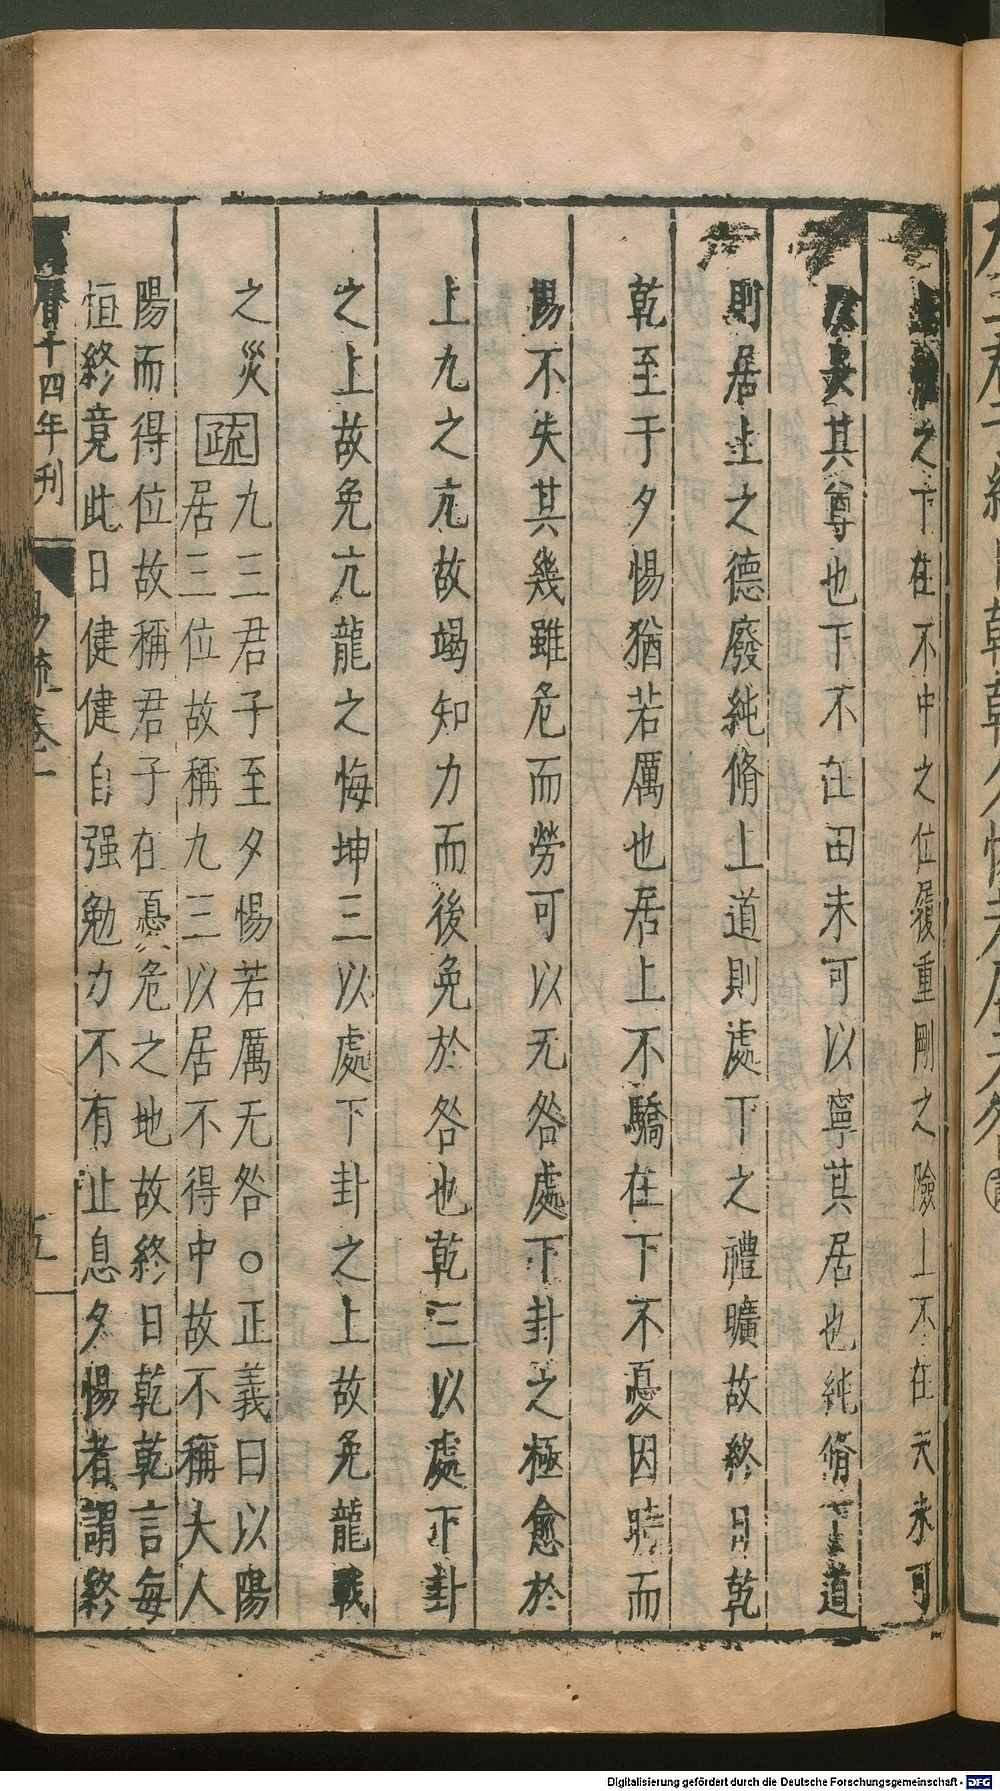 之下在不中之位履重剛之險上不在天未可
其尊也下不在田未可以寧其居也純脩下道
則居上之德廢純脩上道則處下之禮曠故終日乾
乾至于夕惕猶若厲也居上不驕在下不憂因時而
惕不失其幾雖危而勞可以无咎處下卦之極愈於
上九之亢故竭知力而後免於咎也乾三以處下卦
之上故免亢龍之悔坤三以處下卦之上故免龍戰
之災
疏
九三君子至夕惕若厲无咎○正義曰以陽
居三位故稱九三以居不得中故不稱大人
陽而得位故稱君子在憂危之地故終日乾乾言每
恒終竟此日健健自强勉力不有止息夕惕者謂終
曆十四年刊
易疏卷一
五
Digitalisierung gefördert durch die Deutsche Forschungsgemeinschaft - DFG